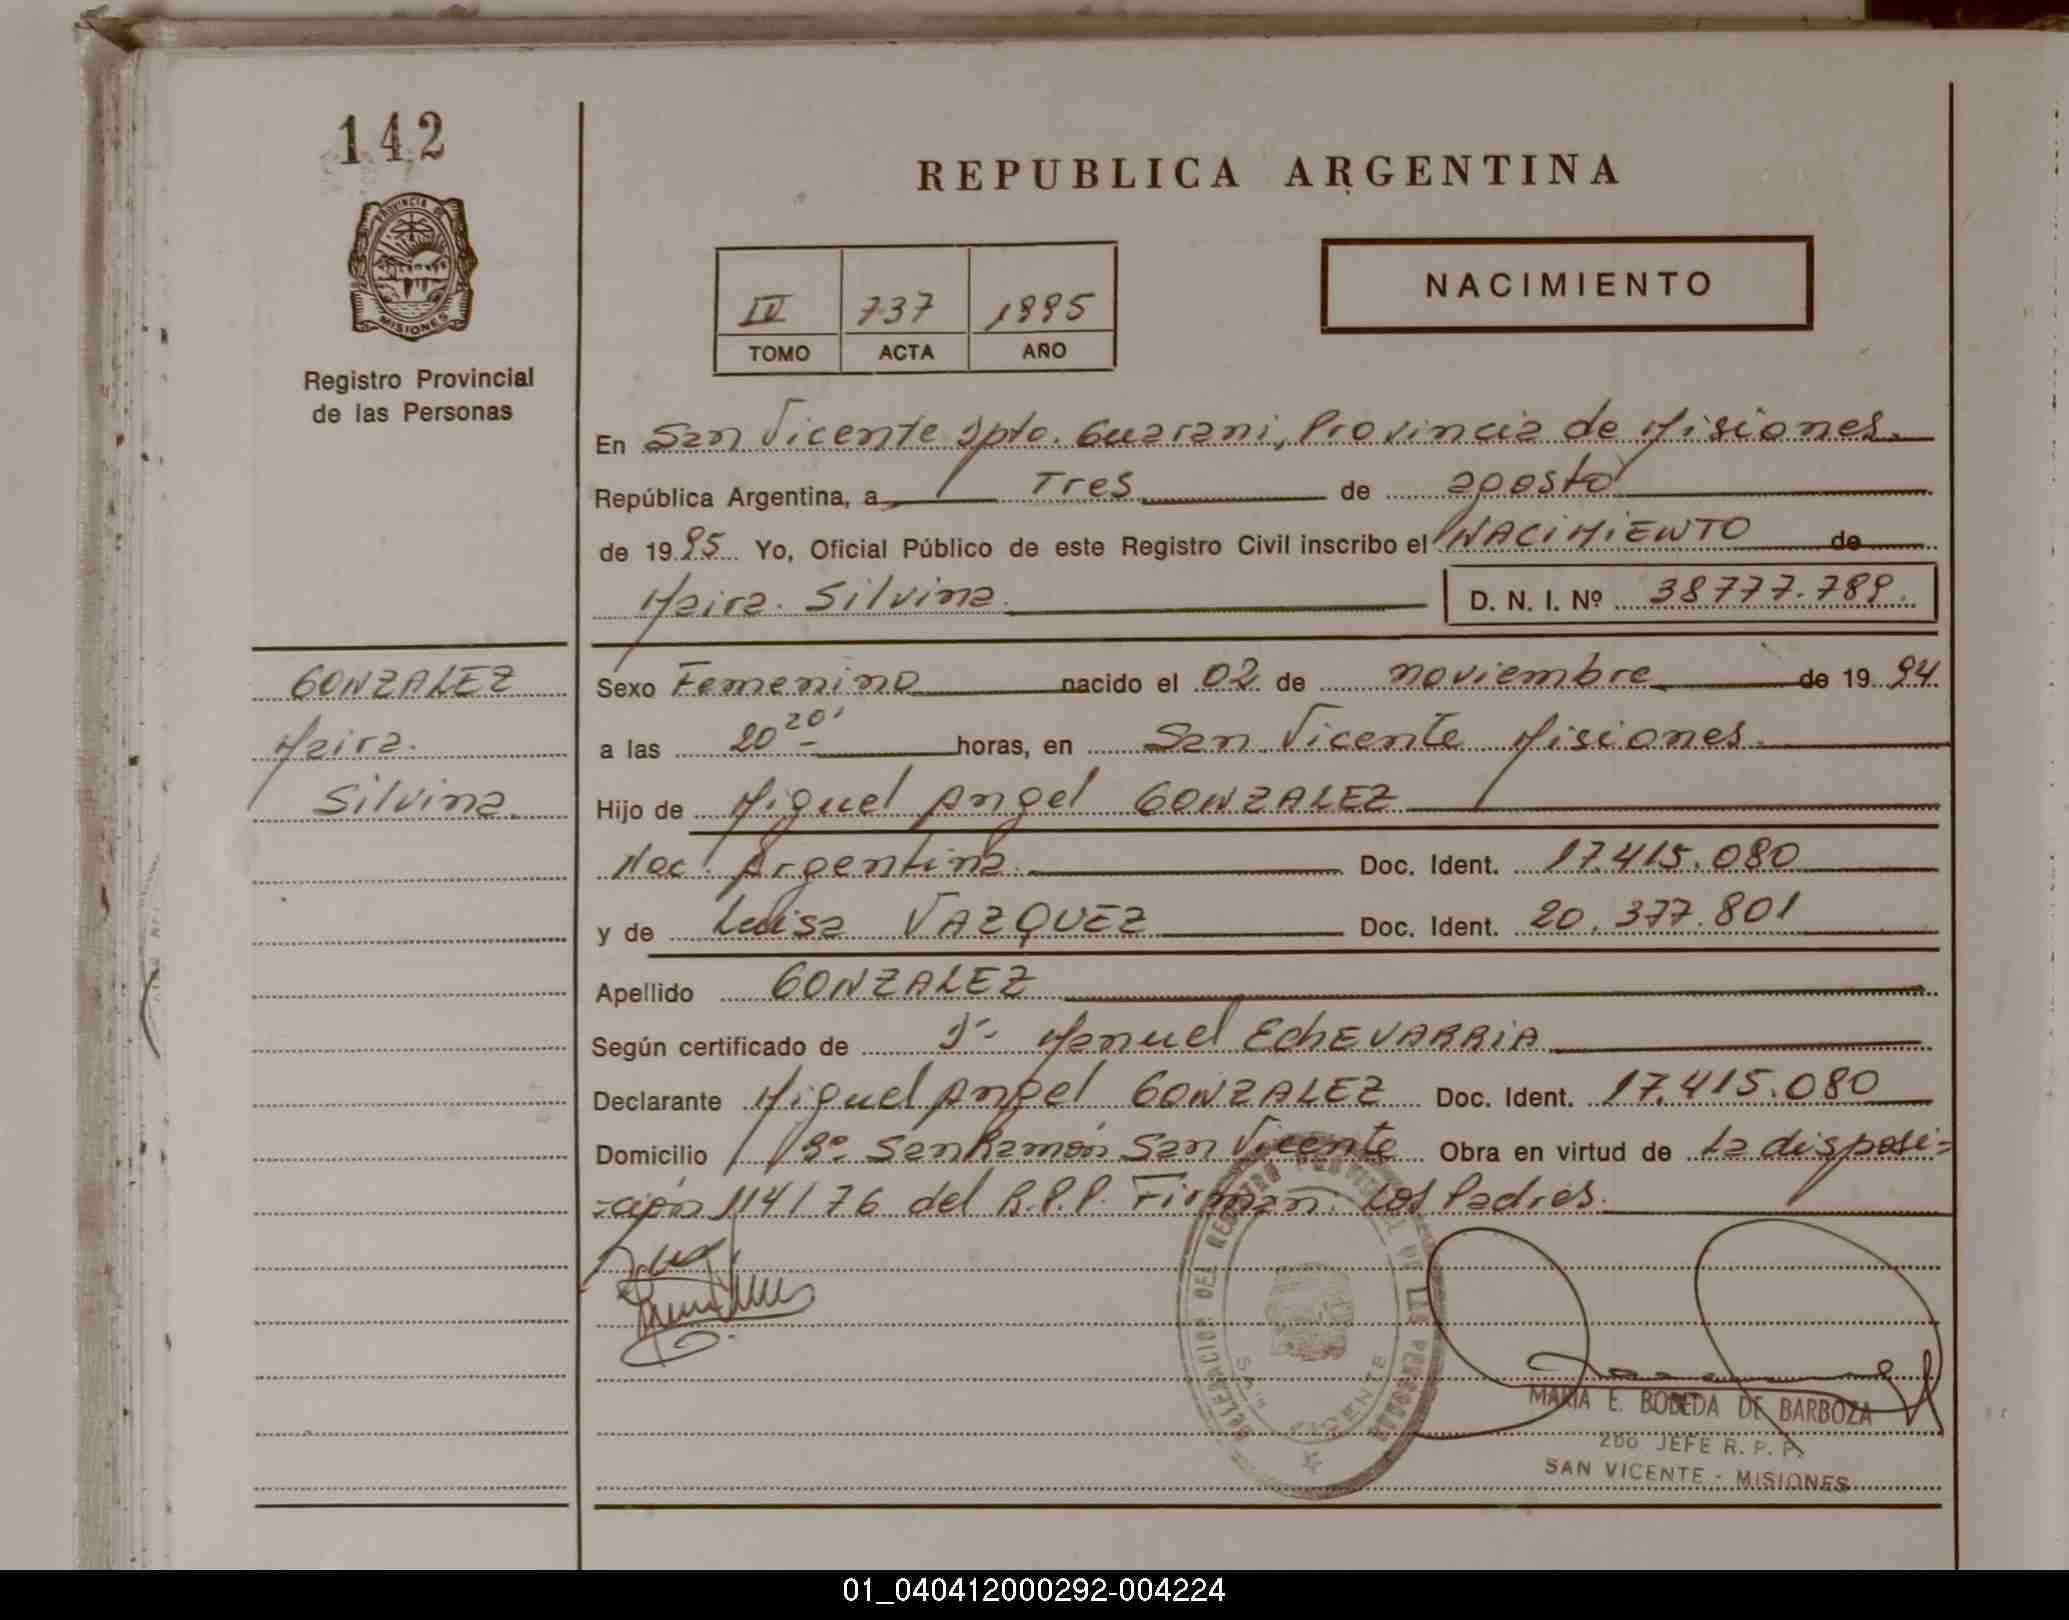 142
REPUBLICA ARGENTINA
PROVINCIA DE
MISIONES
NACIMIENTO
IV 737 1995
TOMO ACTA AÑO
Registro Provincial
de las Personas
En San Vicente Dpto. Guarani, Provincia de Misiones.
República Argentina, a Tres de agosto
de 1995 Yo, Oficial Público de este Registro Civil inscribo el NACIMIENTO de
Maira. Silvina. D. N. I. Nº 38777.789.
GONZALEZ
Maira.
Silvina.
Sexo Femenino nacido el 02 de noviembre de 1994
a las 20 20' horas, en San Vicente Misiones.
Hijo de Miguel Angel GONZALEZ
Nac. Argentina. Doc. Ident. 17.415.080
y de Luisa VAZQUEZ Doc. Ident. 20.377.801
Apellido GONZALEZ
Según certificado de Dr. Manuel EchEVARRIA
Declarante Miguel Angel GONZALEZ Doc. Ident. 17.415.080
Domicilio Bº San Ramón San Vicente Obra en virtud de la disposi=
=ción 114/76 del R.P.P. Firman: Los Padres.
DELEGACION DEL REGISTRO PROVINCIAL DE LAS PERSONAS
SAN VICENTE
MARIA E. BOBEDA DE BARBOZA
2DO JEFE R. P. P.
SAN VICENTE - MISIONES
01_040412000292-004224